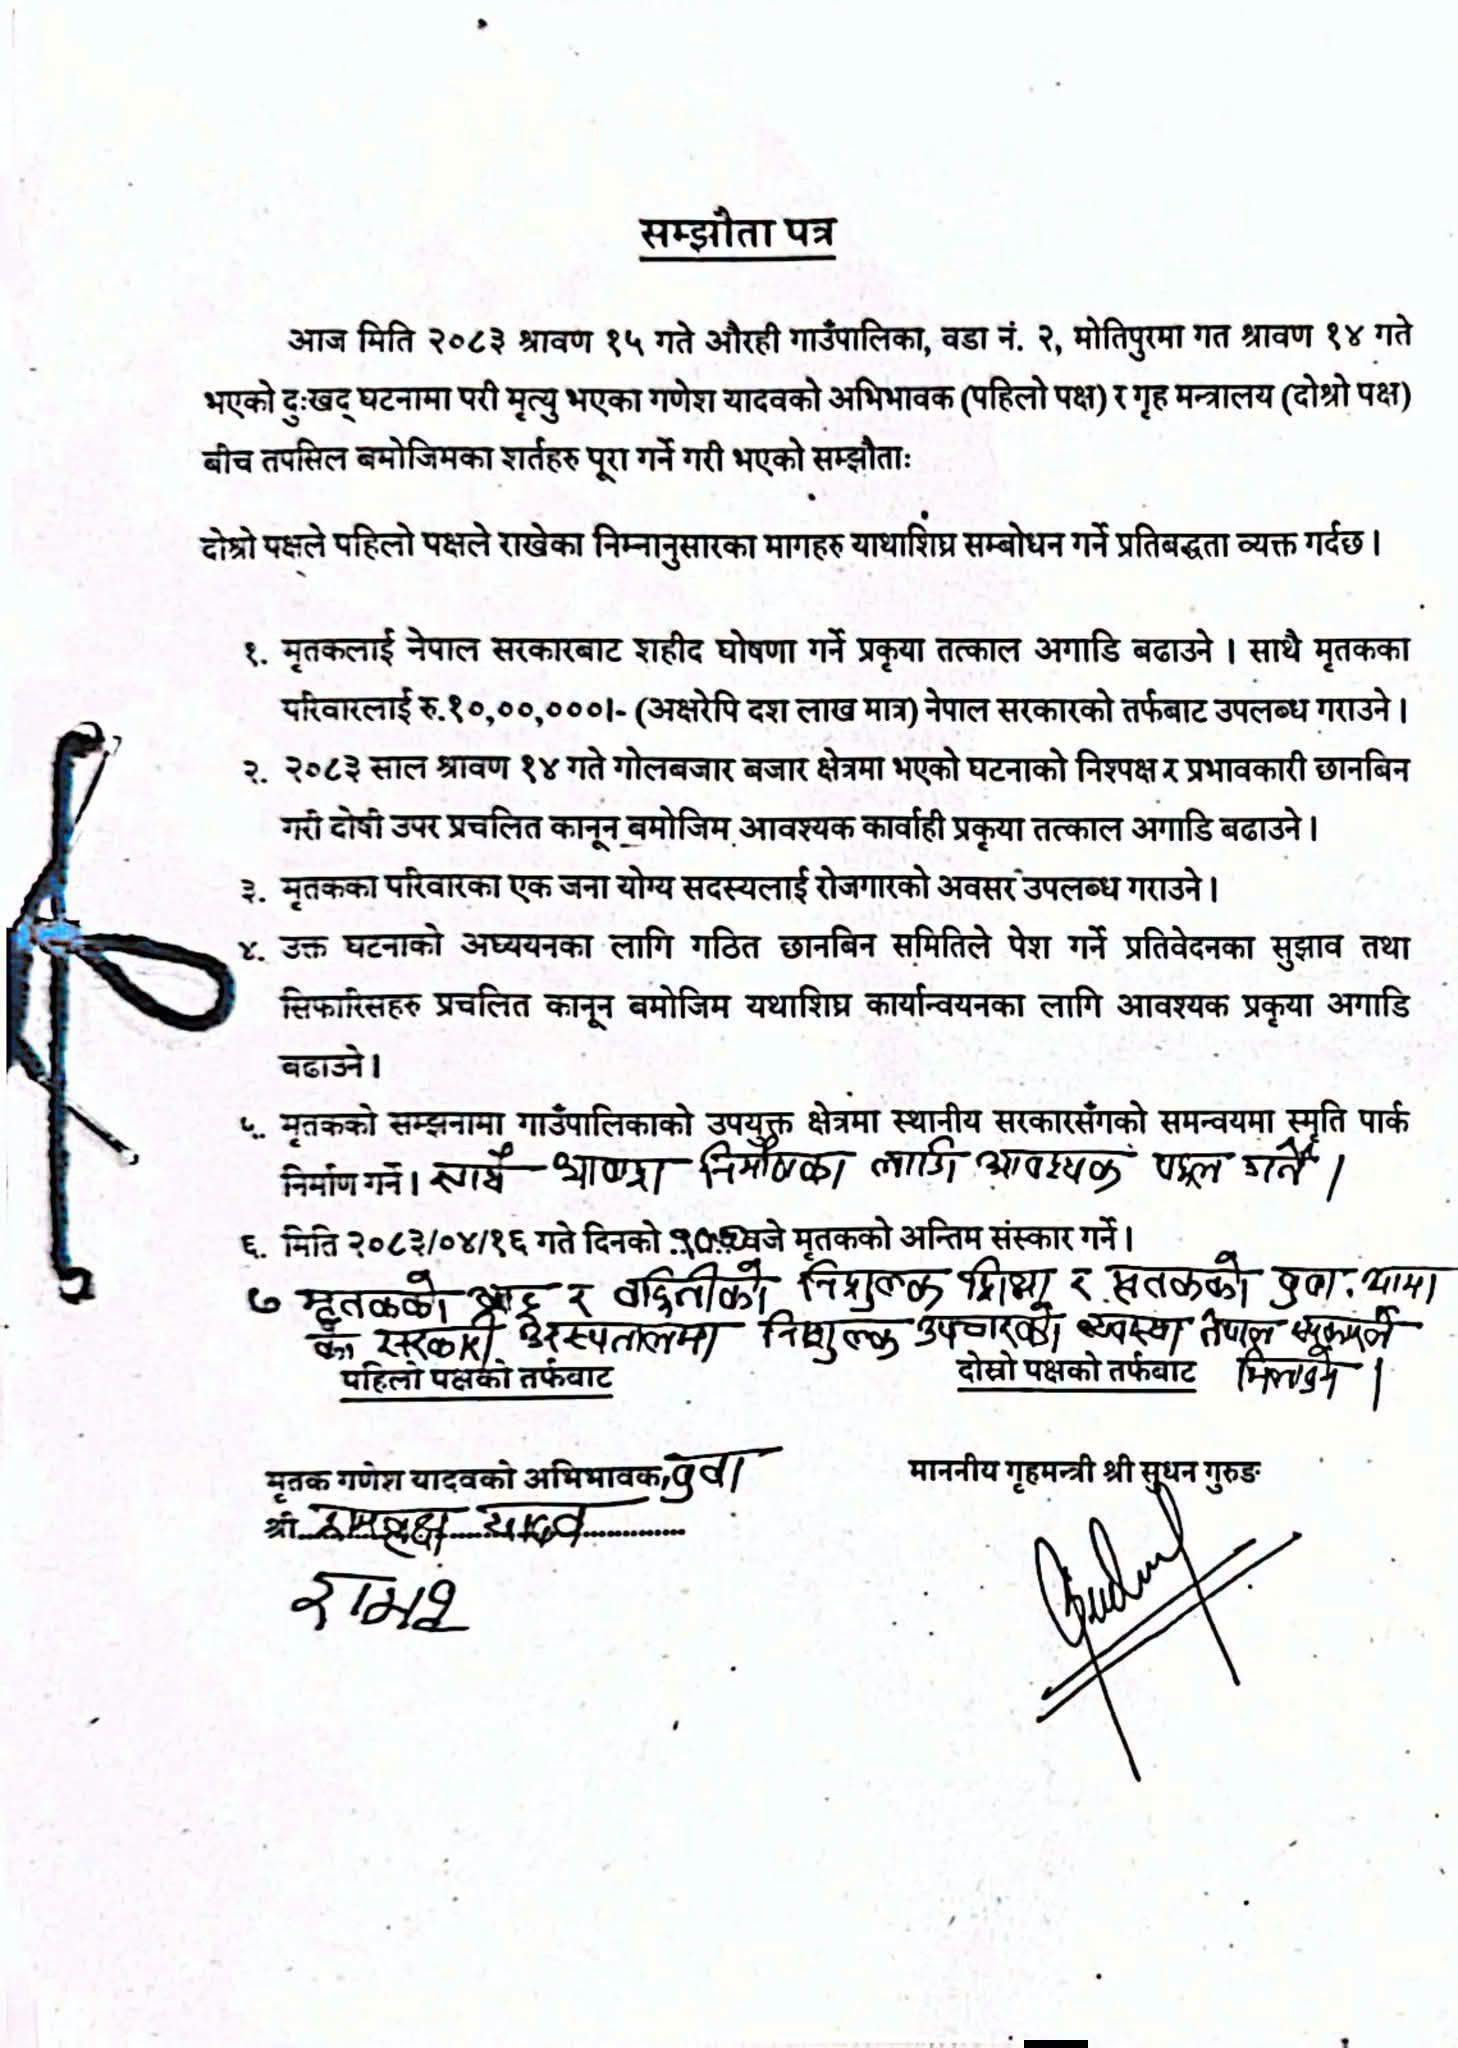 सम्झौता पत्र
आज मिति २०८३ श्रावण १५ गते औरही गाउँपालिका, वडा नं. २, मोतिपुरमा गत श्रावण १४ गते
भएको दुःखद् घटनामा परी मृत्यु भएका गणेश यादवको अभिभावक (पहिलो पक्ष) र गृह मन्त्रालय (दोश्रो पक्ष)
बीच तपसिल बमोजिमका शर्तहरु पूरा गर्ने गरी भएको सम्झौताः
दोश्रो पक्षले पहिलो पक्षले राखेका निम्नानुसारका मागहरु याथाशिघ्र सम्बोधन गर्ने प्रतिबद्धता व्यक्त गर्दछ ।
१. मृतकलाई नेपाल सरकारबाट शहीद घोषणा गर्ने प्रकृया तत्काल अगाडि बढाउने । साथै मृतकका
परिवारलाई रु.१०,००,०००।- (अक्षरेपि दश लाख मात्र) नेपाल सरकारको तर्फबाट उपलब्ध गराउने ।
२. २०८३ साल श्रावण १४ गते गोलबजार बजार क्षेत्रमा भएको घटनाको निश्पक्ष र प्रभावकारी छानबिन
गरी दोषी उपर प्रचलित कानून बमोजिम आवश्यक कार्वाही प्रकृया तत्काल अगाडि बढाउने ।
३. मृतकका परिवारका एक जना योग्य सदस्यलाई रोजगारको अवसर उपलब्ध गराउने ।
४. उक्त घटनाको अध्ययनका लागि गठित छानबिन समितिले पेश गर्ने प्रतिवेदनका सुझाव तथा
सिफारिसहरु प्रचलित कानून बमोजिम यथाशिघ्र कार्यान्वयनका लागि आवश्यक प्रकृया अगाडि
बढाउने ।
५. मृतकको सम्झनामा गाउँपालिकाको उपयुक्त क्षेत्रमा स्थानीय सरकारसँगको समन्वयमा स्मृति पार्क
निर्माण गर्ने । साथै निर्माणका लागि आवश्यक पहल गर्ने ।
६. मिति २०८३/०४/१६ गते दिनको बजे मृतकको अन्तिम संस्कार गर्ने ।
७ मृतकको भाइ र बहिनीको निशुल्क शिक्षा र मृतकको बुवा, आमा
का सरकारी अस्पतालमा निशुल्क उपचारको व्यवस्था नेपाल सरकारले
मिलाउने ।
पहिलो पक्षको तर्फबाट दोस्रो पक्षको तर्फबाट
मृतक गणेश यादवको अभिभावक, बुवा माननीय गृहमन्त्री श्री सुधन गुरुङ
श्री यादव